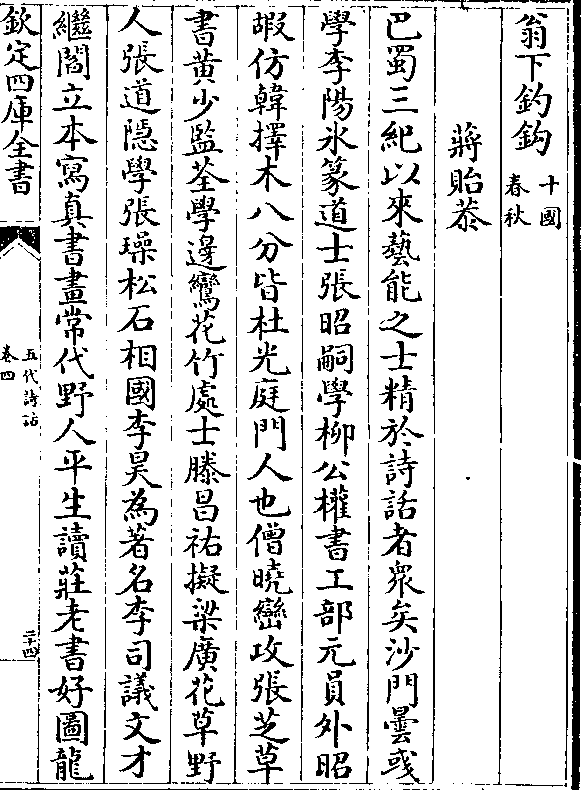 翁下釣鈎十國春秋
蔣貽恭
巴蜀三紀以來藝能之士精於詩話者衆矣沙門曇彧
學李陽氷篆道士張昭嗣學柳公權書工部元員外昭
嘏仿韓擇木八分皆杜光庭門人也僧曉巒攻張芝草
書黄少監荃學邊鸞花竹處士滕昌祐擬梁廣花草野
人張道隠學張璪松石相國李昊為著名李司議文才
繼閻立本寫真書畫常代野人平生讀莊老書好圖龍
欽定四庫全書
五代詩話
卷四
二十四